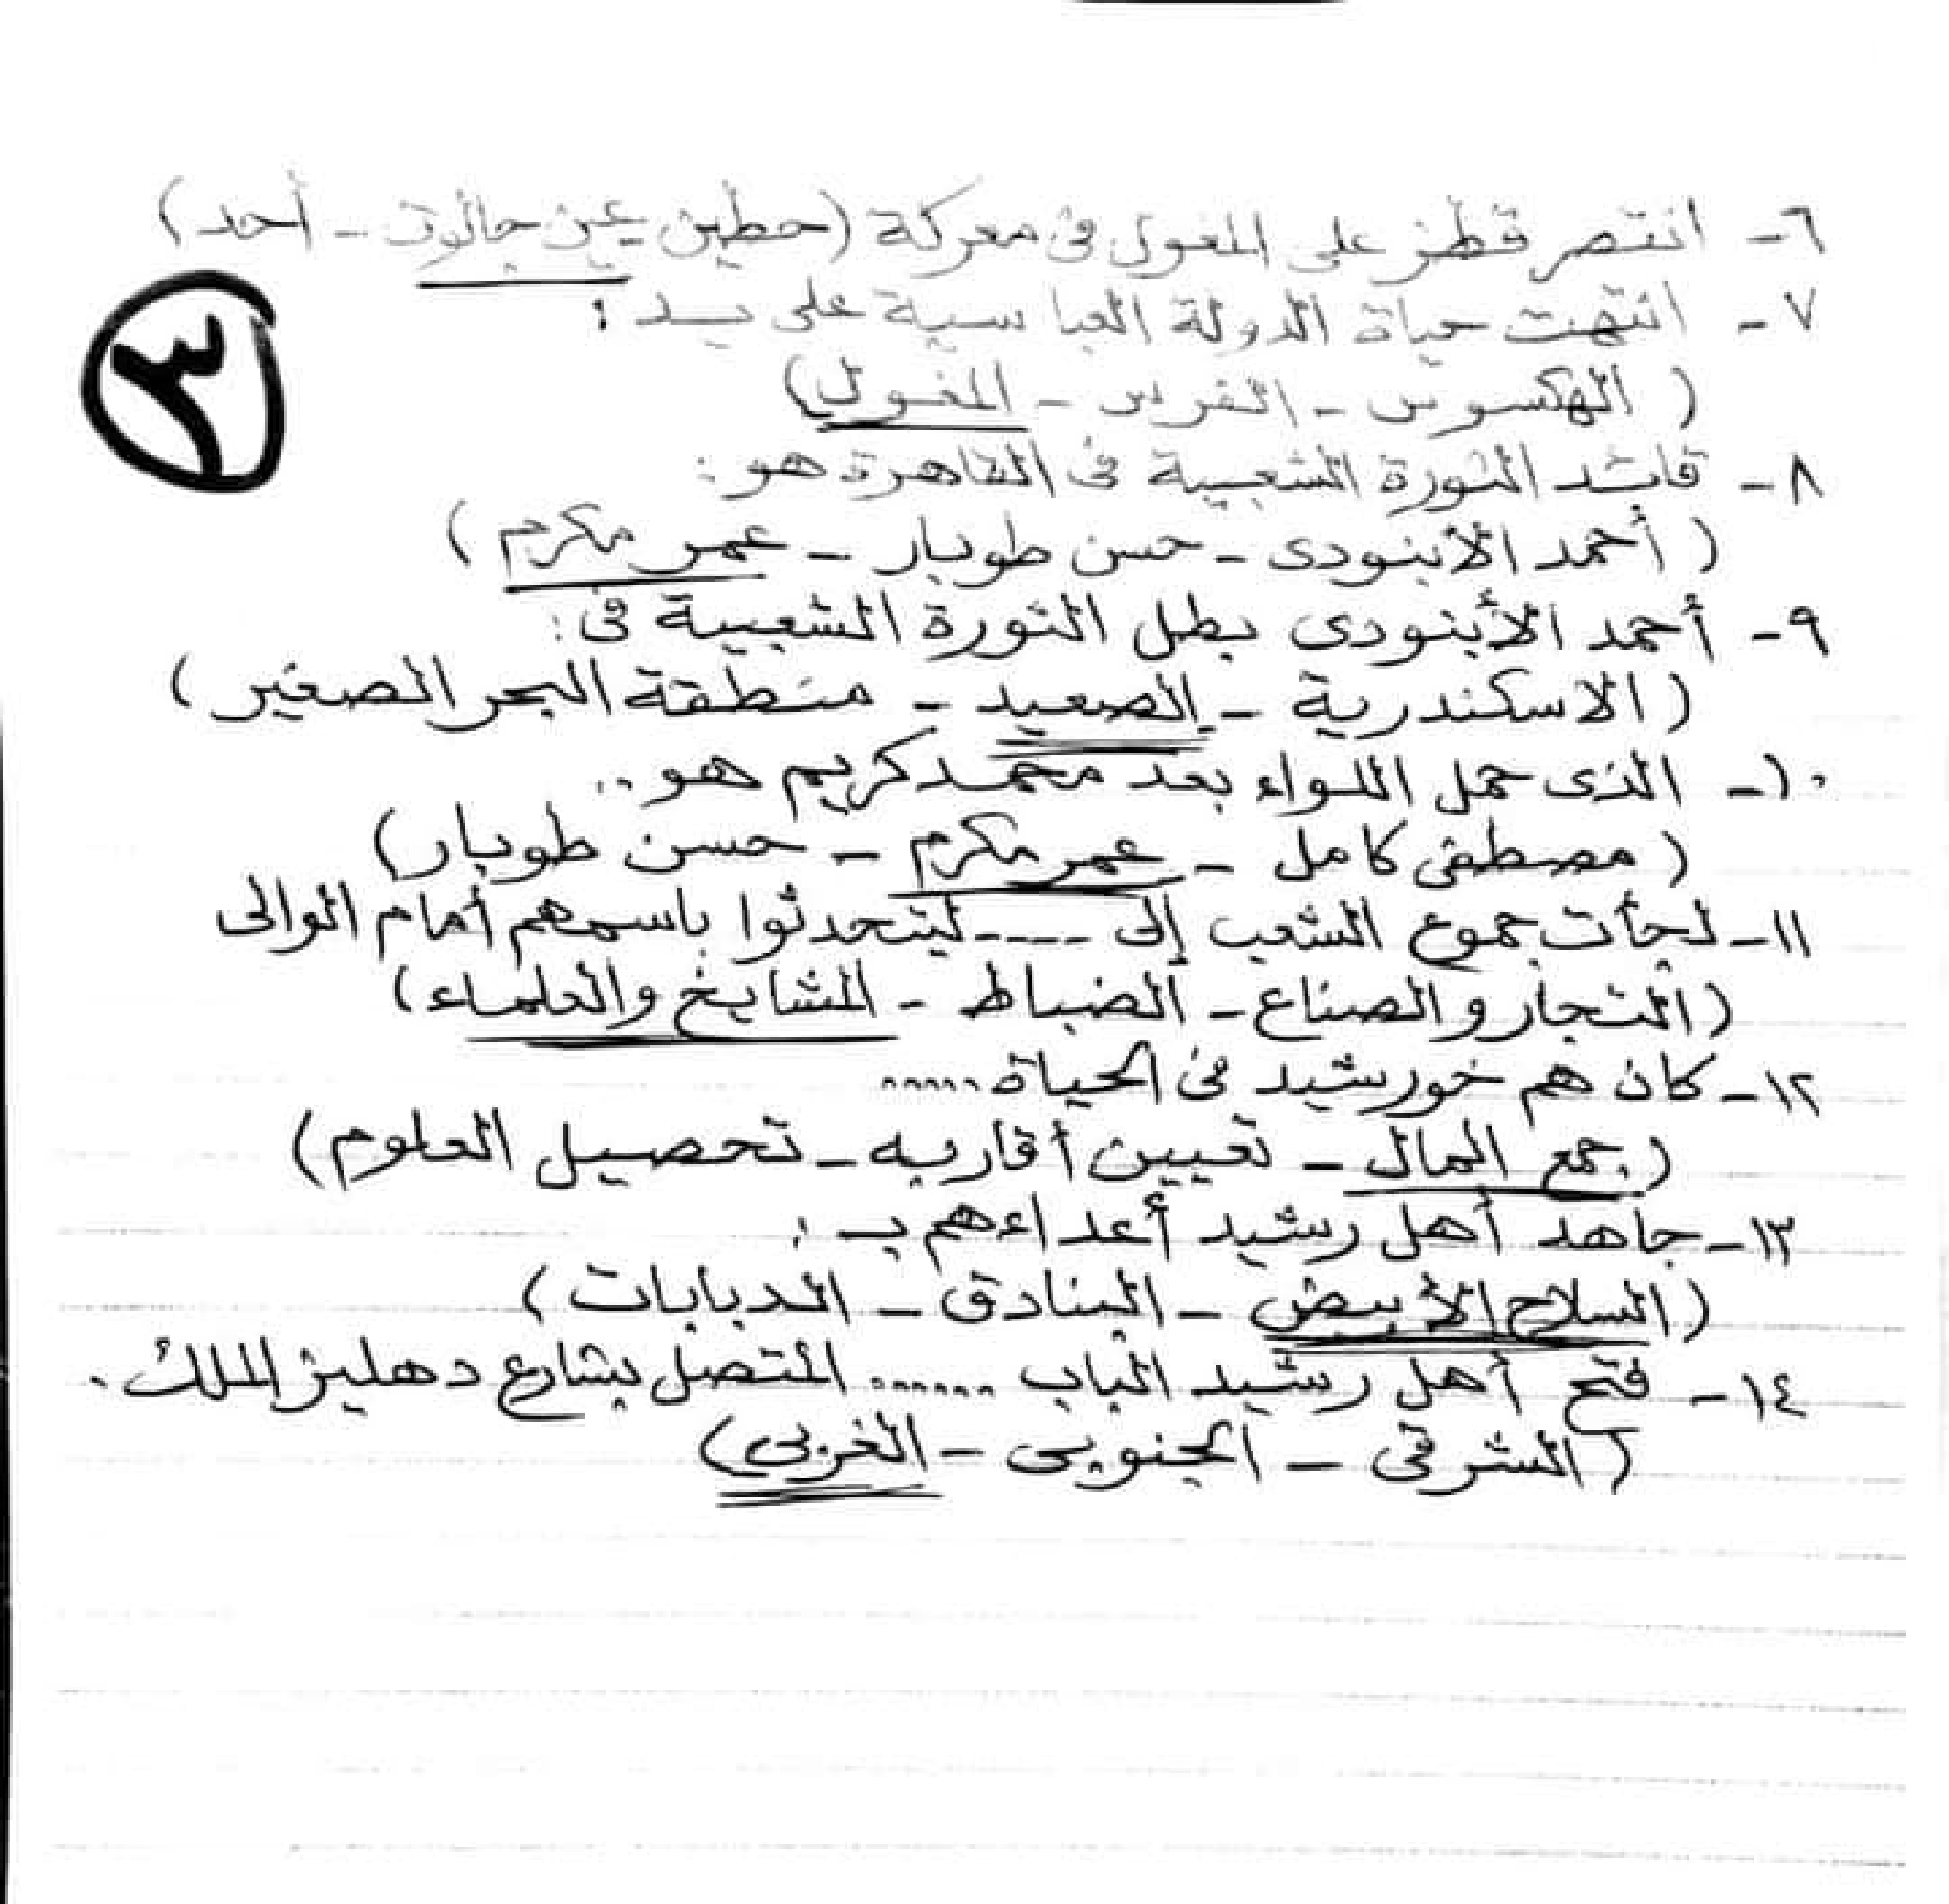 ٦- انتصر قطز على المغول فى معركة (حطين عين جالوت - أحد)
٧- انتهت حياة الدولة العباسية على يد :
( الهكسوس - الفرس - المغول)
٣
٨- قائد الثورة الشعبية فى القاهرة هو :
( أحمد الأبنودى - حسن طوبار - عمر مكرم )
٩- أحمد الأبنودى بطل الثورة الشعبية فى :
( الاسكندرية - الصعيد - منطقة البحر الصغير )
١٠- الذى حمل اللواء بعد محمد كريم هو ..
( مصطفى كامل - عمر مكرم - حسن طوبار)
١١- لجأت جموع الشعب إلى ---- ليتحدثوا باسمهم أمام الوالى
( التجار والصناع - الضباط - المشايخ والعلماء )
١٢- كان هم خورشيد فى الحياة ......
( جمع المال - تعيين أقاربه - تحصيل العلوم )
١٣- جاهد أهل رشيد أعداءهم بـ :
( السلاح الأبيض - البنادق - الدبابات )
١٤- فتح أهل رشيد الباب ...... المتصل بشارع دهليز الملك .
( الشرقى - الجنوبى - الغربى )